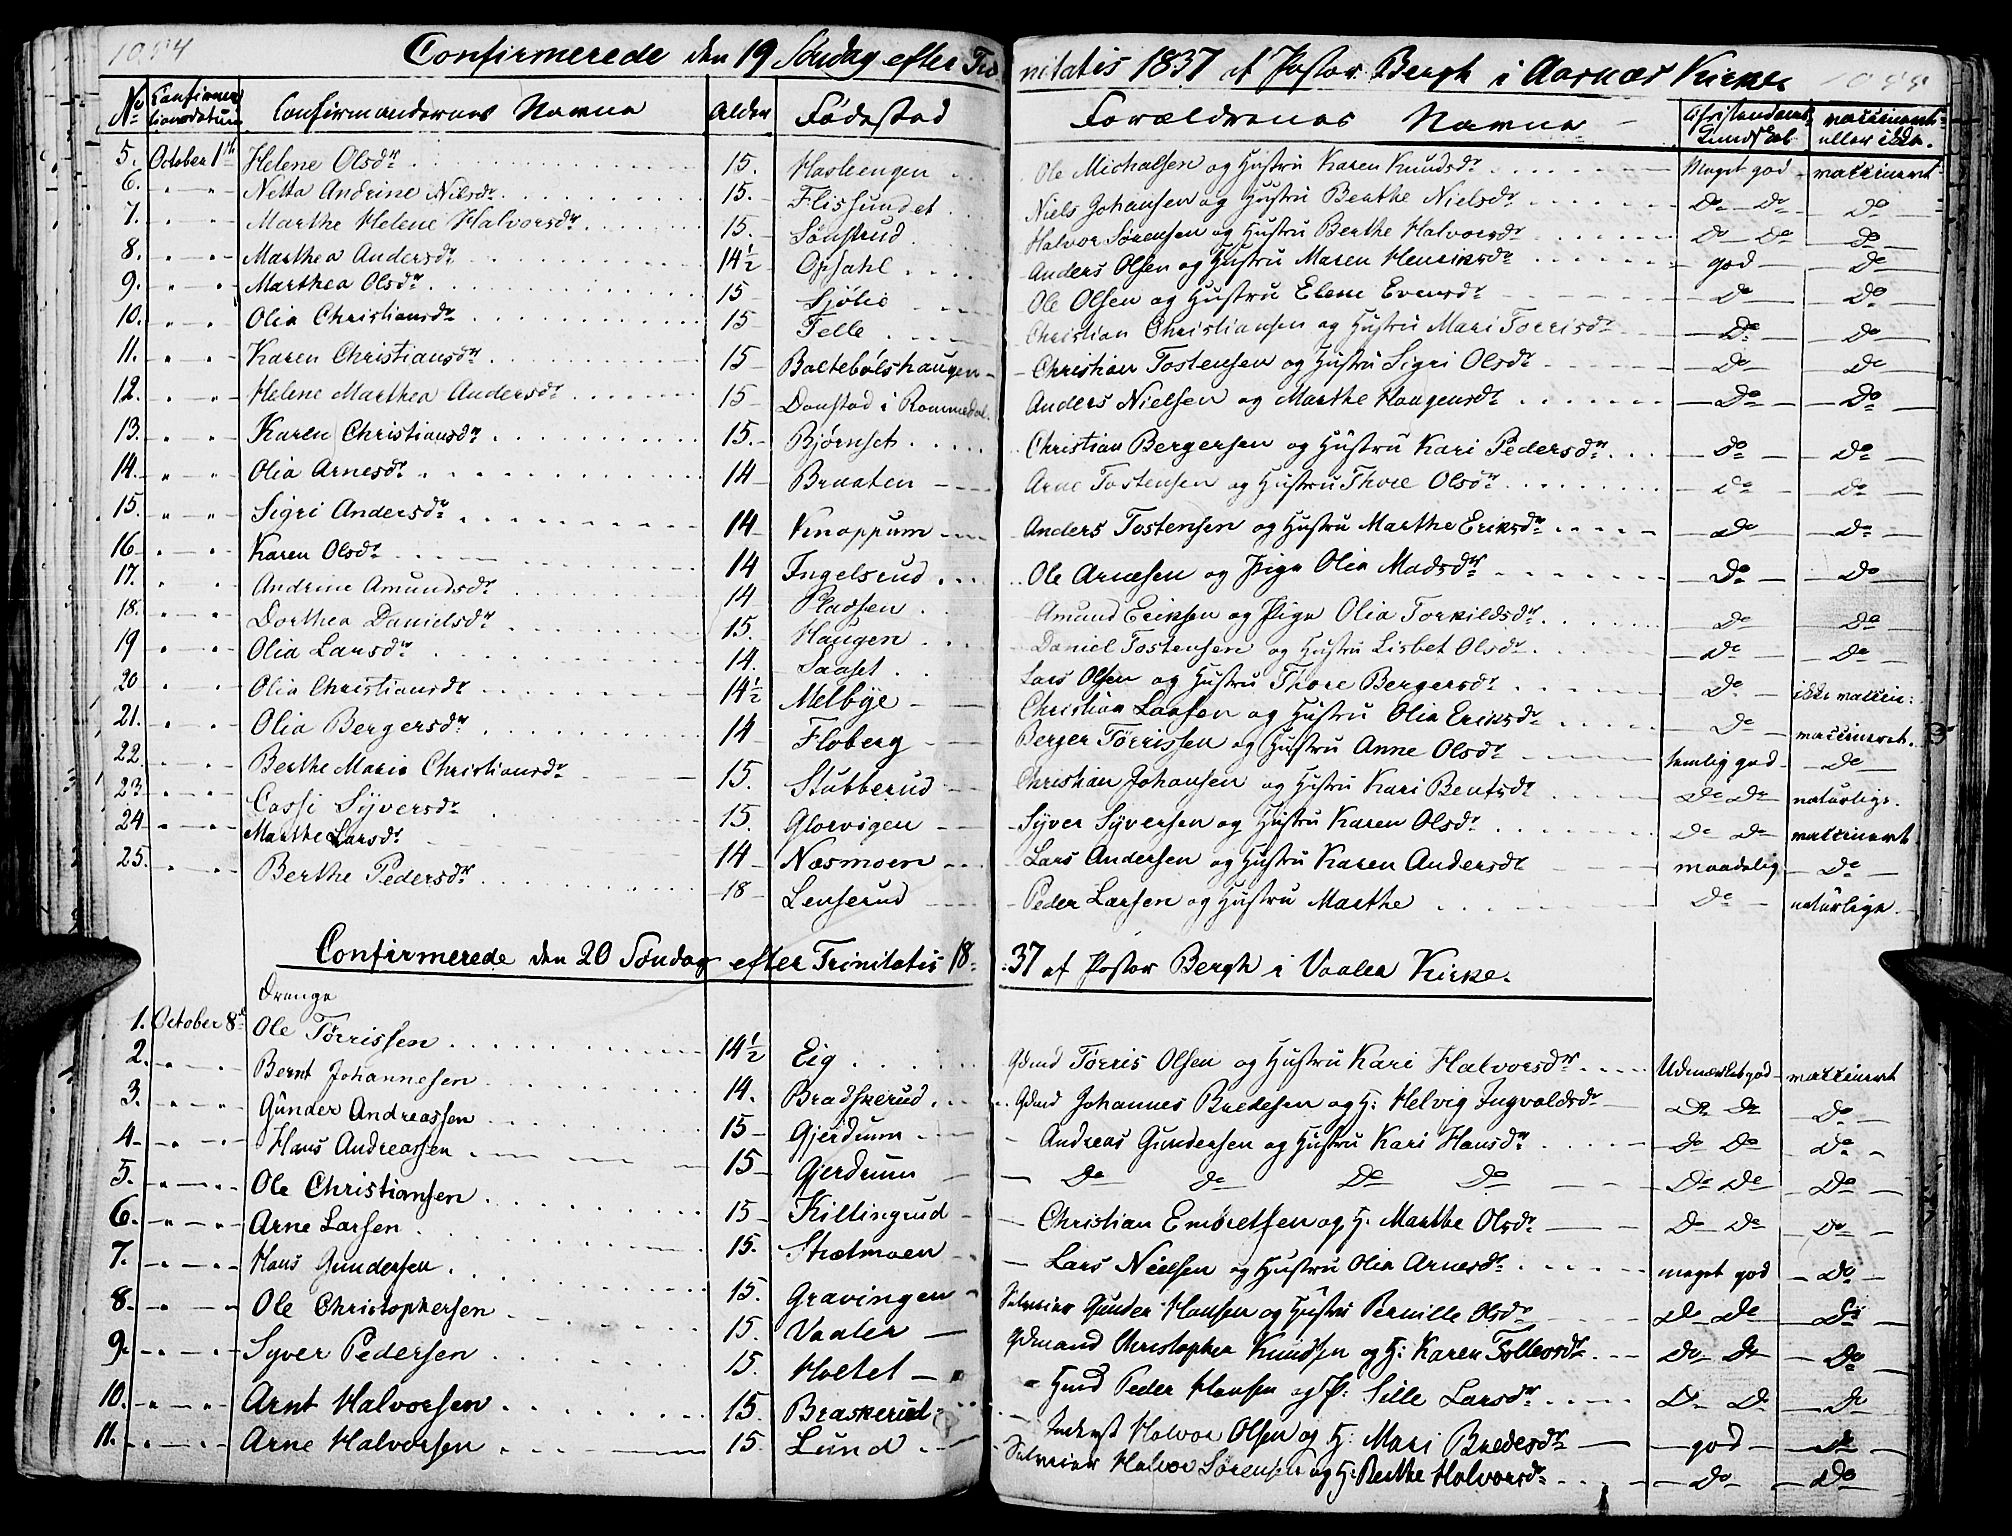 1094
Confirmerede den 19 Søndag efter Trinitatis 1837 af Pastor Bergh i Aasnæs Kirke.
No Confirmationsdatum Confirmandernes Navne Alder Fødested Forældrenes Navne Christendoms Kundskab vaccineret eller ikke.
5. October 1ste Helene Olsdr 15. Hasliengen Ole Michalsen og Hustru Karen Knudsdr Meget god vaccineret
6. " " Netta Andrine Nilsdr 15. Flissundet Niels Johansen og Hustru Berthe Nielsdr Do Do Do
7. " " Marthe Helene Halvorsdr 15. Sønstrud Halvor Sørensen og Hustru Berthe Halvorsdr Do Do Do
8. " " Marthea Andersdr 14½ Opsahl Anders Olsen og Hustru Maren Henriksdr god Do
9. " " Marthea Olsdr 15 Sjølie Ole Olsen og Hustru Eleni Evensdr Do Do
10. " " Olia Christiansdr 15 Telle Christian Christiansen og Hustru Mari Torrisdr Do Do
11. " " Karen Christiansdr 15 Baltebølshaugen Christian Tostensen og Hustru Sigri Olsdr Do Do
12. " " Helene Marthea Andersdr 15 Donstad i Rommedal Anders Nielsen og Marthe Haagensdr Do Do
13. " " Karen Christiansdr 15. Bjørnset Christian Bergersen og Hustru Kari Pedersdr Do Do
14. " " Olia Arnesdr 14 Braaten Arne Tostensen og Hustru Thore Olsdr Do Do
15. " " Sigri Andersdr 14 Knappum Anders Tostensen og Hustru Marthe Eriksdr Do Do
16 " " Karen Olsdr 14 Ingelsrud Ole Arnesen og Pige Olia Madsdr Do Do
17. " " Andrine Amundsdr 14 Pladsen Amund Eriksen og Pige Olia Torkildsdr Do Do
18. " " Dorthea Danielsdr 15. Haugen Daniel Tostensen og Hustru Lisbet Olsdr Do Do
19 " " Olia Larsdr 14. Saaset Lars Olsen og Hustru Thore Bergersdr Do ikke vaccin:
20 " " Olia Christiansdr 14½ Melbye Christian Larsen og Hustru Olia Eriksdr Do vaccineret.
21. " " Olia Bergersdr 14 Floberg Berger Tørrissen og Hustru Anne Olsdr temlig god Do
22. " " Berthe Maria Christiansdr 15. Stubberud Christian Johansen og Hustru Kari Bentsdr Do Do naturlige.
23 " " Cassi Syversdr 15. Glorvigen Syver Syversen og Hustru Karen Olsdr Do Do vaccineret
24 " " Marthe Larsdr 14 Næsmoen Lars Andersen og Hustru Karen Andersdr maadelig Do
25. " " Berthe Pedersdr 18 Lenserud Peder Larsen og Hustru Marthe Do naturlige.
Confirmerede den 20 Søndag efter Trinitatis 18:37 af Pastor Bergh i Vaaler Kirke.
Drenge
1. October 8de Ole Tørrissen 14½ Eig Gdmd Tørris Olsen og Hustru Kari Halvorsdr Udmærket god vaccineret
2. " " Bernt Johannesen 14. Bradskerud Gdmd Johannes Bredesen og H: Helvig Ingvaldsdr Do Do Do
3. " " Gunder Andreassen 15 Gjerdrum Andreas Gundersen og Hustru Kari Hansdr Do Do Do
4 " " Hans Andreassen 15 Gjerdrum Do Do Do Do Do Do Do
5. " " Ole Christiansen 15 Killingrud Christian Embretsen og H: Marthe Olsdr Do Do Do
6. " " Arne Larsen 15. Strætmoen Lars Nielsen og Hustru Olia Arnesdr meget god Do
7. " " Hans Gundersen 15. Gravingen Selveier Gunder Hansen og Hustru Pernille Olsdr Do Do Do
8. " " Ole Christophersen 15. Vaaler Gdmand Christopher Knudsen og H: Karen Tollevsdr Do Do Do
9. " " Syver Pedersen 15. Holtet Hmd Peder Hansen og P: Sille Larsdr Do Do Do
10. " " Arnt Halvorsen 15. Braskerud Inderst Halvor Olsen og H: Mari Bredesdr god Do
11. " " Arne Halvorsen 15. Lund Selveier Halvor Sørensen og H: Berthe Halvorsdr Do Do